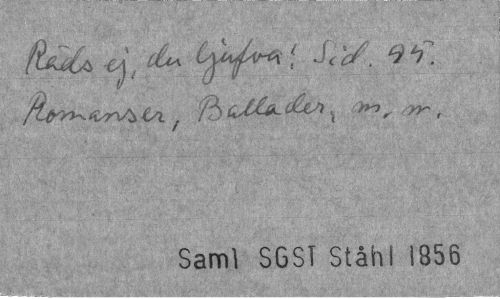 Räds ej, du ljufva! Sid. 95.
Romanser, Ballader, m. m.
Saml SGST Ståhl 1856